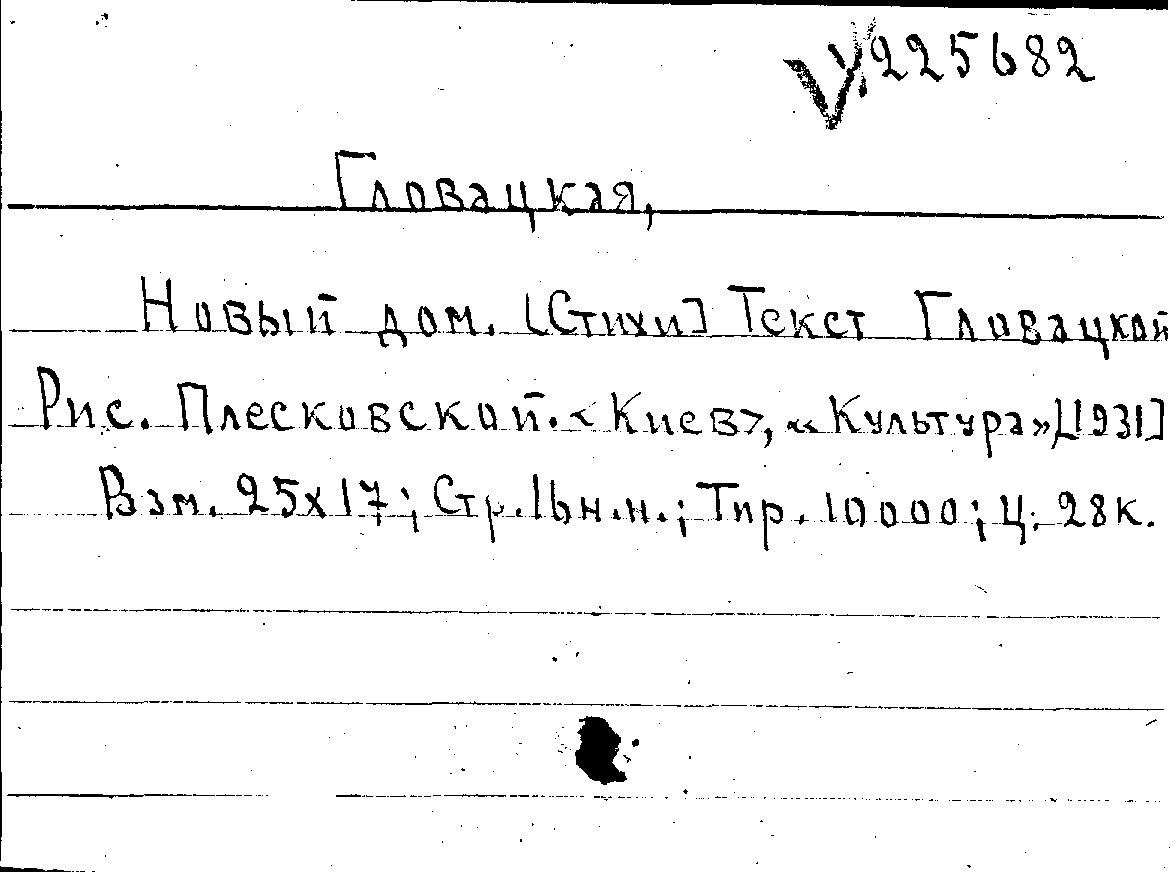 V 225682
Гловацкая,
Новый дом. [Стихи] Текст Гловацкой
Рис. Плесковской. <Киев>, «Культура» [1931]
Взм. 25х17; Стр. 16 н.н.; Тир. 10000; Ц. 28 к.